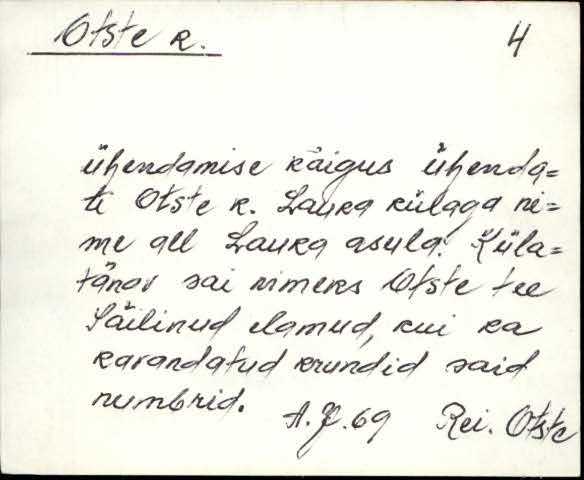 Otste k.
4
ühendamise käigus ühenda=
ti Otste k. Laura külaga ni=
me all Laura asula. Küla=
tänav sai nimeks Otste tee
Säilinud elamud, kui ka
kavandatud krundid said
numbrid.
A. J. 69 Rei. Otste